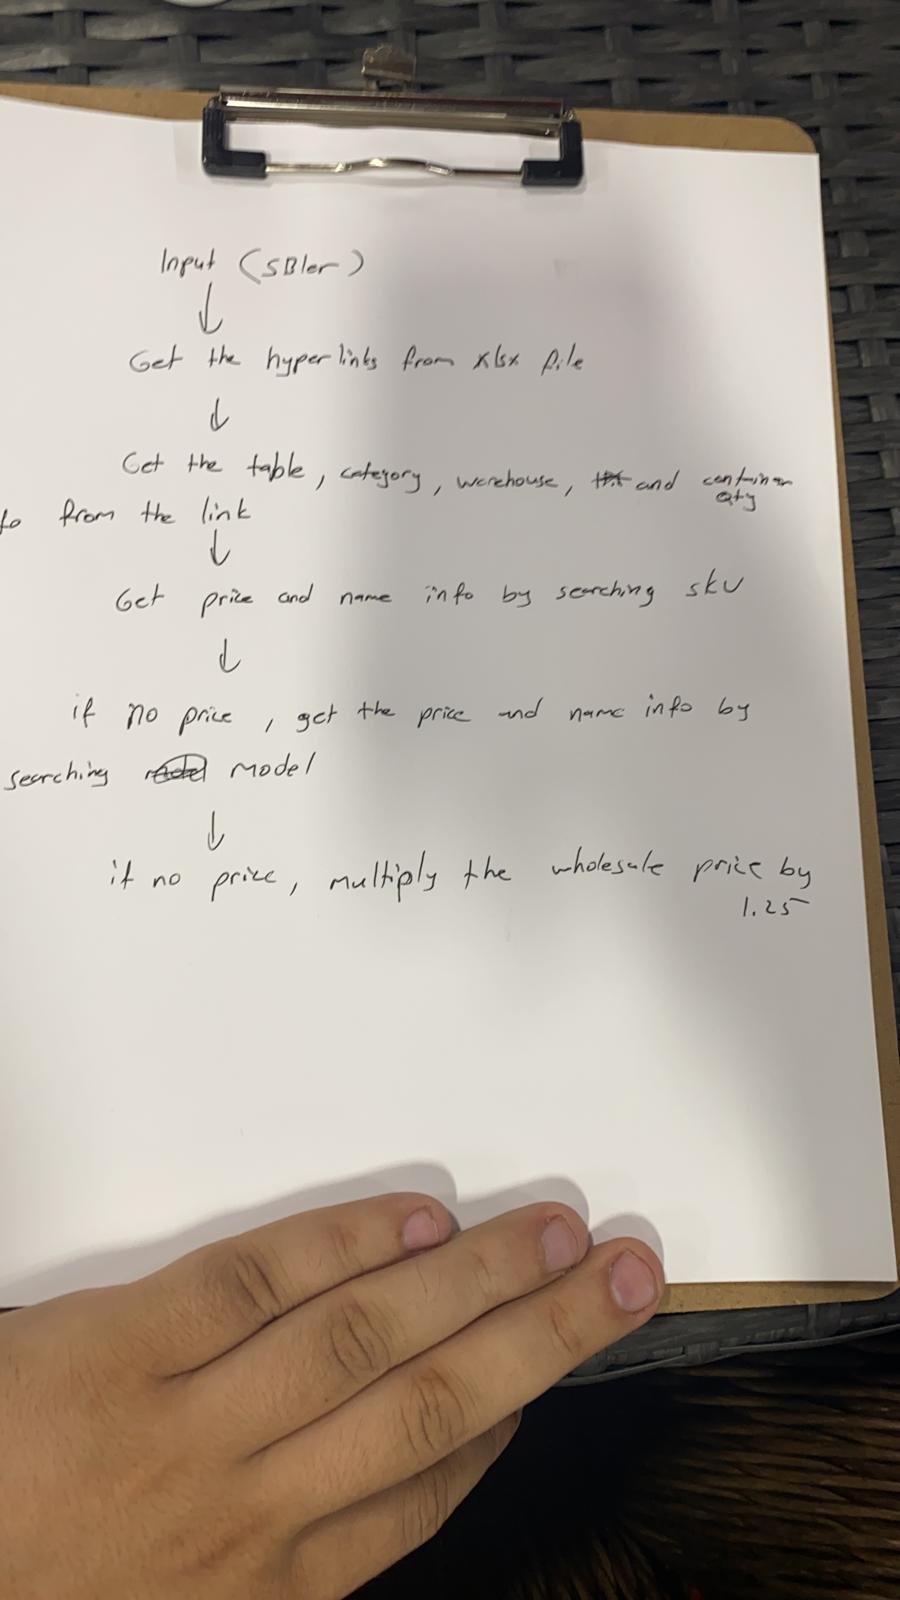 Input (SBler)
↓
Get the hyperlinks from xlsx file
↓
Get the table, category, warehouse, and container
qty
fo from the link
↓
Get price and name info by searching SKU
↓
if no price, get the price and name info by
searching model
↓
if no price, multiply the wholesale price by
1.25